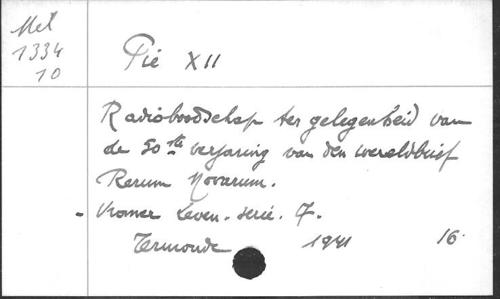 Mel
1334
10
Pie XII
Radioboodschap ter gelegenheid van
de 50ste verjaring van den wereldbrief
Rerum Novarum.
- Vromer Leven. serie. 7.
Termonde 1941 16